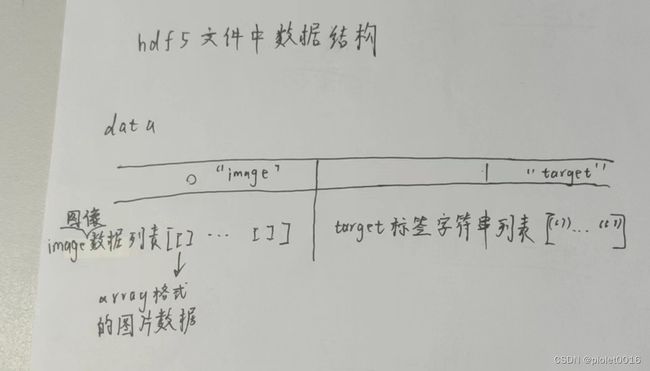 hdf5 文件中数据结构
data
0 "image" 1 "target"
图像
image数据列表[[] ... []] target标签字符串列表["" ... ""]
array格式
的图片数据
CSDN @plolet0016